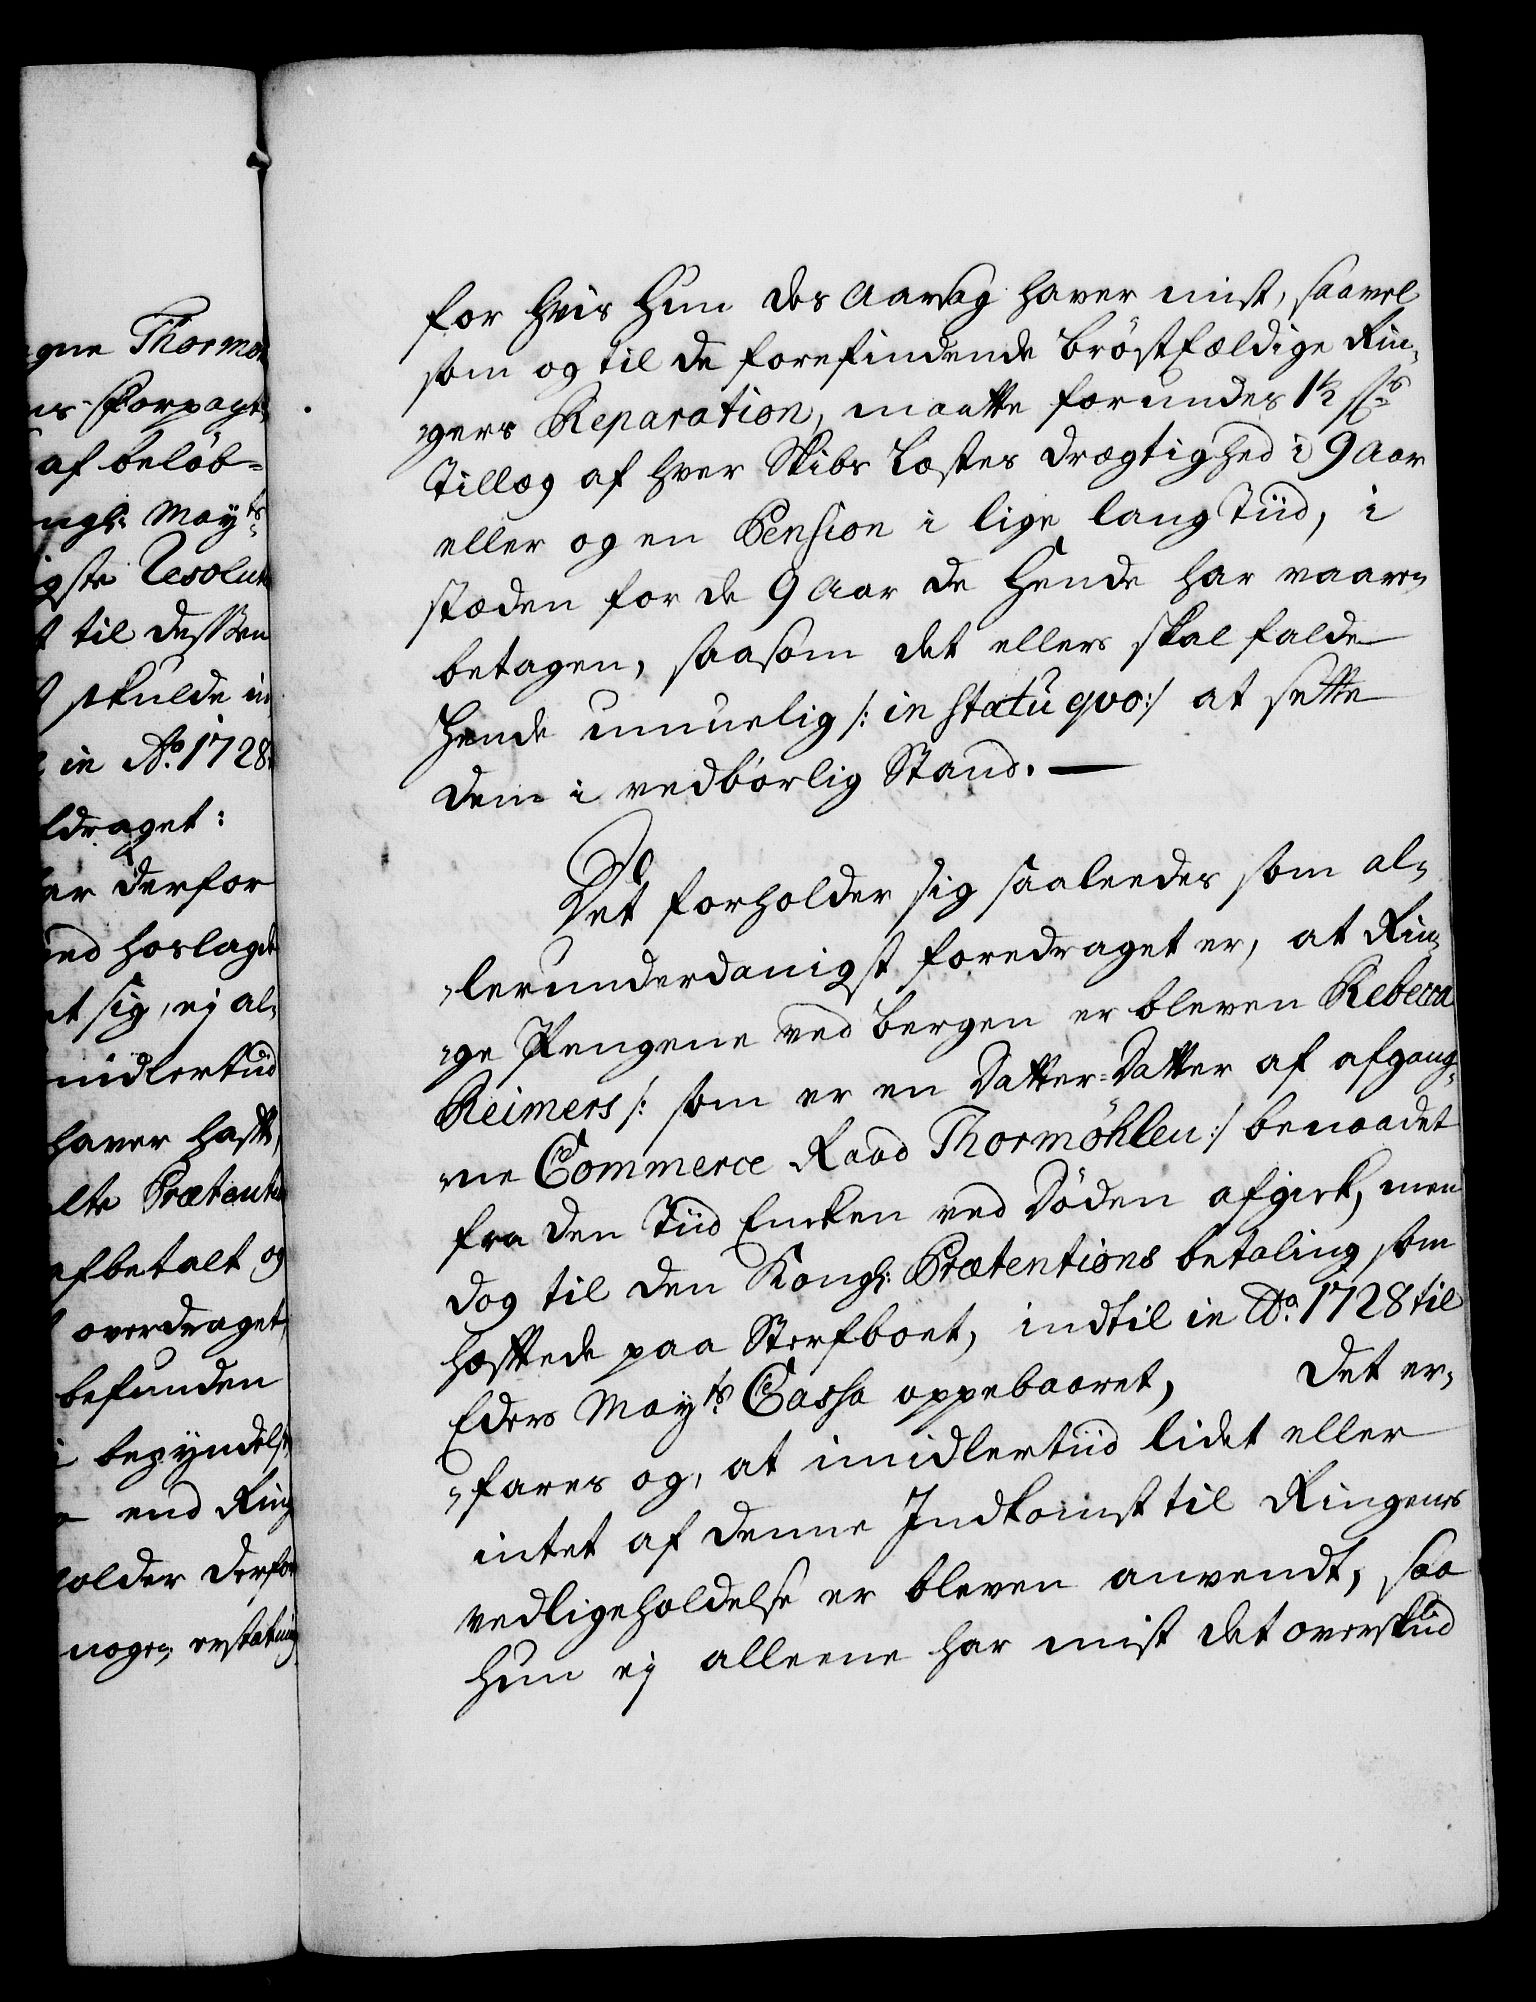 gne Thormø
ns Forpagt
af beløb-
ngl: Mayts
igste Resolut
til dessen
skulde in
in Ao. 1728
ldraget:
er derfor
end hoslagde
et sig, ej al-
midlertiid
haver hafft,
elte Prætention
afbetalt og
overdraget,
befunden
i begyndelse
end Ring
holder derfor
nogen erstatning
for hvis Hun des Aarsag haver mist, saavel
som og til de forefindende brøstfældige Rin-
-gers Reparation, maatte forundes 1½ sk
Tillæg af hver Skibs Læstes drægtighed i 9 Aar
eller og en Pension i lige lang Tiid, i
stæden for de 9 Aar de Hende har vaaren
betagen, saasom det ellers skal falde
Hende umuelig /: in statu qvo:/ at sette
dem i vedbørlig Stand. —
Det forholder sig saaleedes som al-
-lerunderdanigst foredraget er, at Rin-
-ge Pengene ved Bergen er bleven Rebecca
Reimers /: som er en Datter-Datter af afgang-
-ne Commerce Raad Thormøhlen:/ benaadet
fra den Tiid Encken ved Døden afgick, men
dog til den Kongl: Prætentions betaling som
hæfftede paa Sterfboet, indtil in Ao. 1728 til
Eders Mayts Cassa oppebaaret, Det er-
-fares og, at imidlertiid lidet eller
intet af denne Indkomst til Ringenes
vedligeholdelse er bleven anvendt, saa
Hun ej alleene har mist det overskud